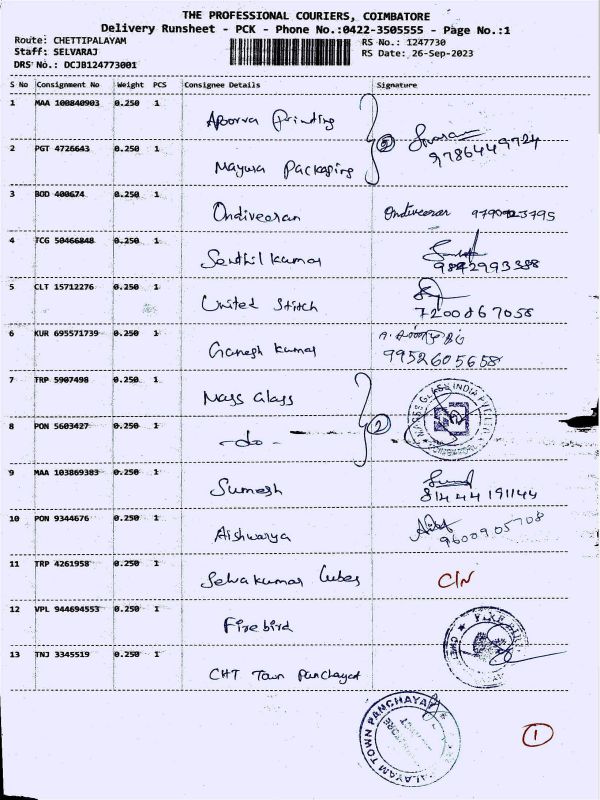 THE PROFESSIONAL COURIERS, COIMBATORE
Delivery Runsheet - PCK - Phone No.:0422-3505555 - Page No.:1
Route: CHETTIPALAYAM
RS No.: 1247730
Staff: SELVARAJ
RS Date: 26-Sep-2023
DRS No.: DCJB124773001
S No Consignment No Weight PCS Consignee Details Signature
1 MAA 100840903 0.250 1 Apoorva Printing
2 PGT 4726643 0.250 1 Mayura Packaging 9786449724
3 BOD 400674 0.250 1 Ondiveeran Ondiveeran
4 TCG 50466848 0.250 1 Senthil kumar 9842993388
5 CLT 15712276 0.250 1 United Stitch 7200867058
6 KUR 695571739 0.250 1 Ganesh kumar 9952605658
7 TRP 5907498 0.250 1 Mass Glass
8 PON 5603427 0.250 1 -do- 2
9 MAA 103869383 0.250 1 Sumesh 8144419 1144
10 PON 9344676 0.250 1 Aishwarya 9600905708
11 TRP 4261958 0.250 1 Selvakumar Lubes C/N
12 VPL 944694553 0.250 1 Firebird
13 TNJ 3345519 0.250 1 CHT Town Panchayat
TOWN PANCHAYAT
1